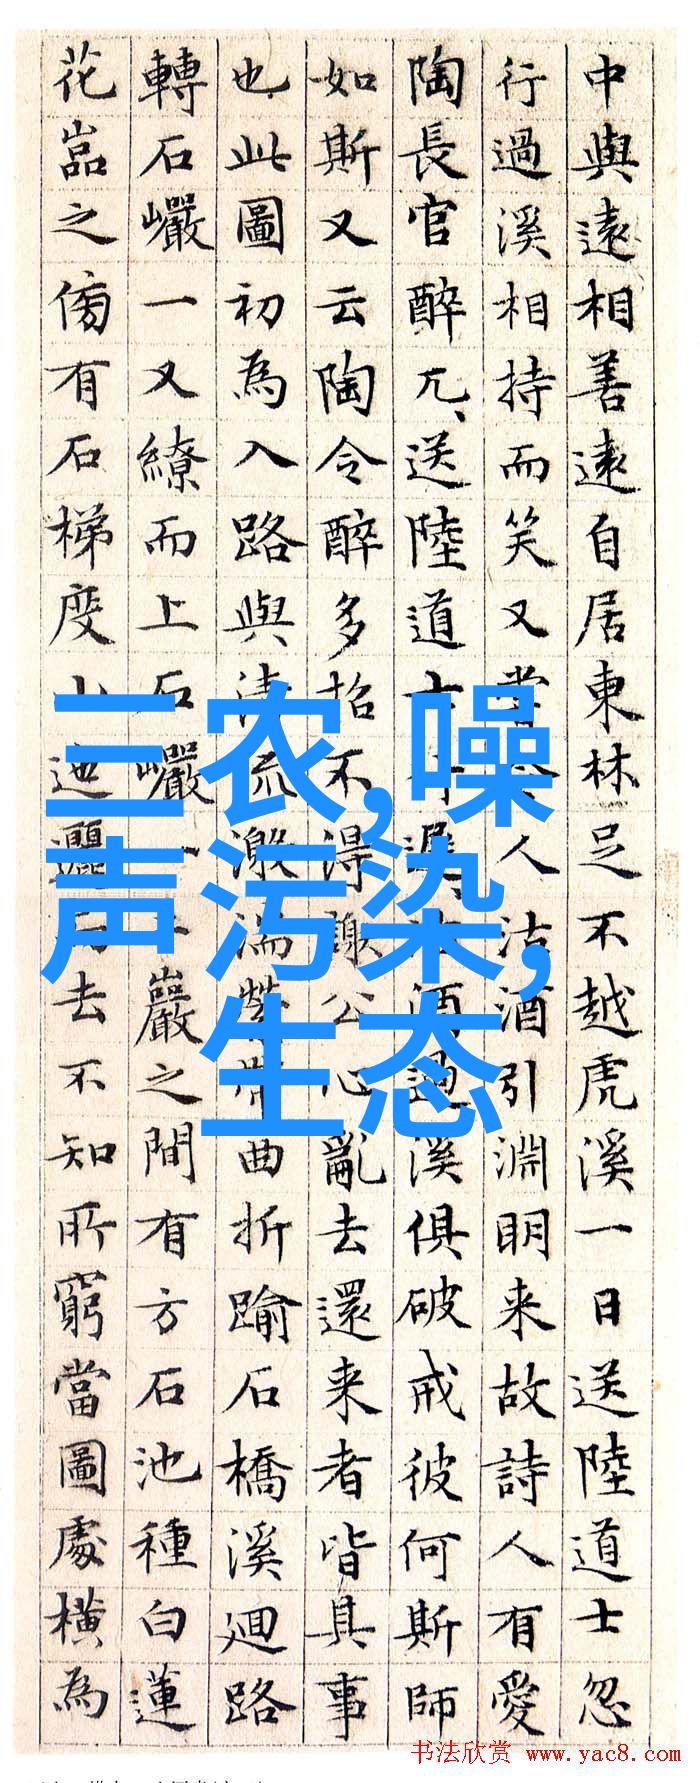 中與遠相善遠自居東林足不越虎溪一日送陸道士忽
行過溪相持而笑又人沽酒引淵明来故詩人有愛
陶長官醉兀、送陸道酒過溪俱破戒彼何斯師
如斯又云陶令醉多招不得公心亂去還来者皆其事
也此圖初為入路與流激湍曲折踰石橋溪迴路
轉石巗一又繚而上石巗巖之間有方石池種白蓮
花嵓之傍有石梯度迤邐去不知所窮當圖處橫為
三农,噪
声污染,
生态
书法欣赏 www.yac8.com